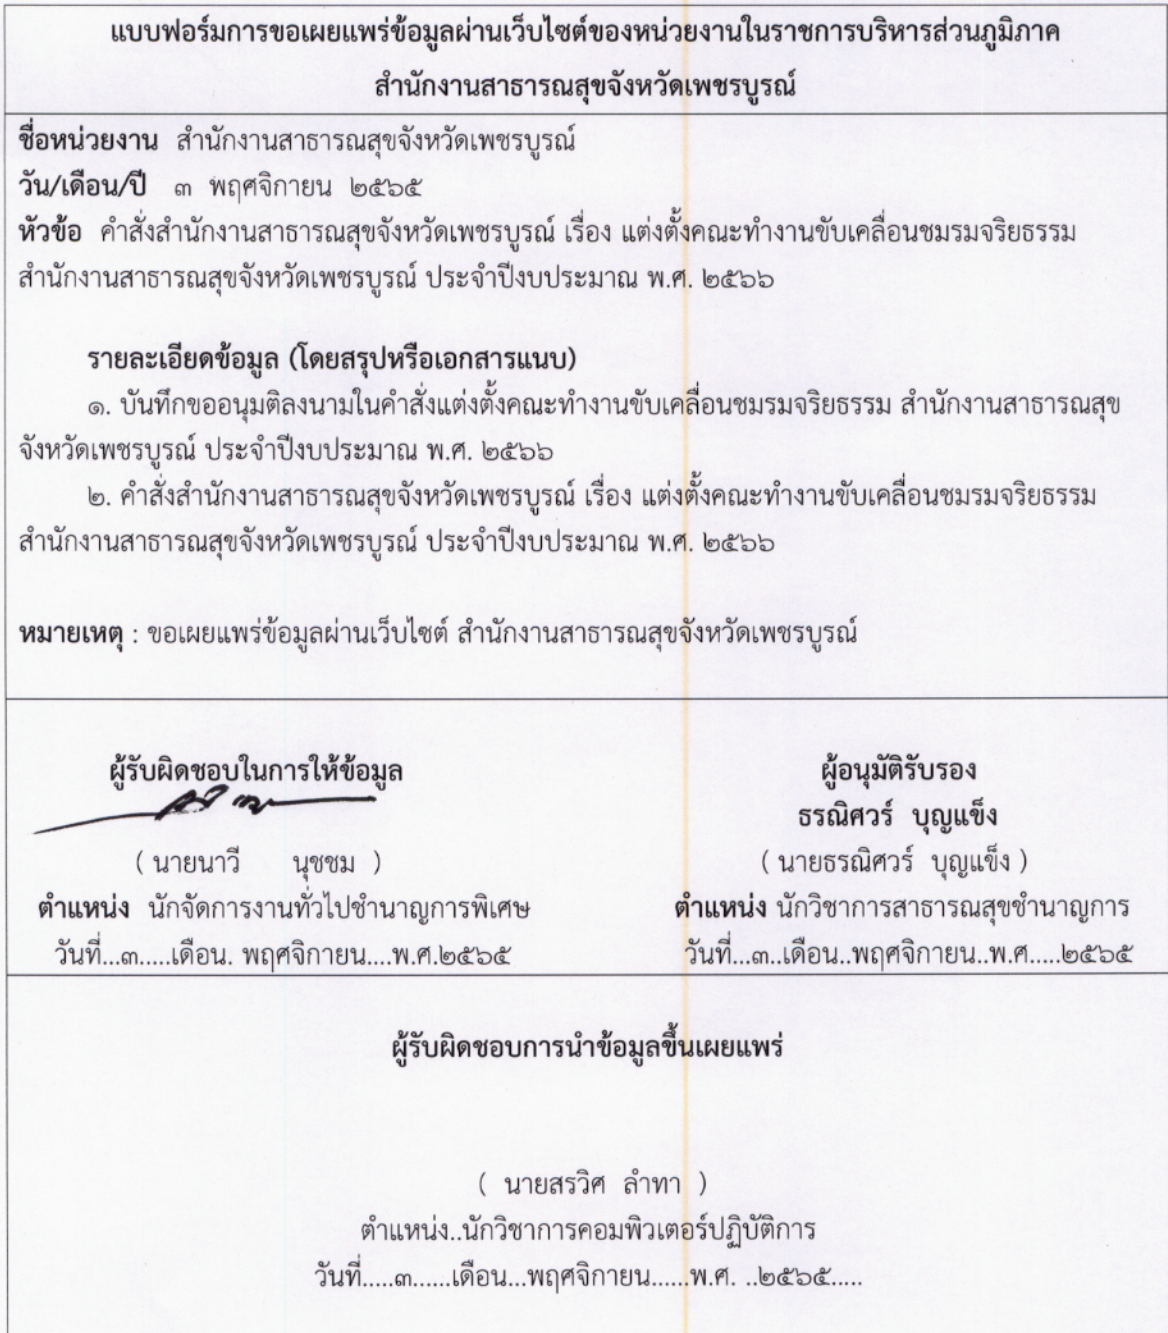 แบบฟอร์มการขอเผยแพร่ข้อมูลผ่านเว็บไซต์ของหน่วยงานในราชการบริหารส่วนภูมิภาค
สำนักงานสาธารณสุขจังหวัดเพชรบูรณ์
ชื่อหน่วยงาน สำนักงานสาธารณสุขจังหวัดเพชรบูรณ์
วัน/เดือน/ปี ๓ พฤศจิกายน ๒๕๖๕
หัวข้อ คำสั่งสำนักงานสาธารณสุขจังหวัดเพชรบูรณ์ เรื่อง แต่งตั้งคณะทำงานขับเคลื่อนชมรมจริยธรรม
สำนักงานสาธารณสุขจังหวัดเพชรบูรณ์ ประจำปีงบประมาณ พ.ศ. ๒๕๖๖
รายละเอียดข้อมูล (โดยสรุปหรือเอกสารแนบ)
๑. บันทึกขออนุมติลงนามในคำสั่งแต่งตั้งคณะทำงานขับเคลื่อนชมรมจริยธรรม สำนักงานสาธารณสุข
จังหวัดเพชรบูรณ์ ประจำปีงบประมาณ พ.ศ. ๒๕๖๖
๒. คำสั่งสำนักงานสาธารณสุขจังหวัดเพชรบูรณ์ เรื่อง แต่งตั้งคณะทำงานขับเคลื่อนชมรมจริยธรรม
สำนักงานสาธารณสุขจังหวัดเพชรบูรณ์ ประจำปีงบประมาณ พ.ศ. ๒๕๖๖
หมายเหตุ : ขอเผยแพร่ข้อมูลผ่านเว็บไซต์ สำนักงานสาธารณสุขจังหวัดเพชรบูรณ์
ผู้รับผิดชอบในการให้ข้อมูล
( นายนาวี นุชชม )
ตำแหน่ง นักจัดการงานทั่วไปชำนาญการพิเศษ
วันที่...๓.....เดือน. พฤศจิกายน....พ.ศ.๒๕๖๕
ผู้อนุมัติรับรอง
ธรณิศวร์ บุญแข็ง
( นายธรณิศวร์ บุญแข็ง )
ตำแหน่ง นักวิชาการสาธารณสุขชำนาญการ
วันที่...๓..เดือน..พฤศจิกายน..พ.ศ.....๒๕๖๕
ผู้รับผิดชอบการนำข้อมูลขึ้นเผยแพร่
( นายสรวิศ ลำทา )
ตำแหน่ง..นักวิชาการคอมพิวเตอร์ปฏิบัติการ
วันที่.....๓......เดือน...พฤศจิกายน......พ.ศ. ..๒๕๖๕.....